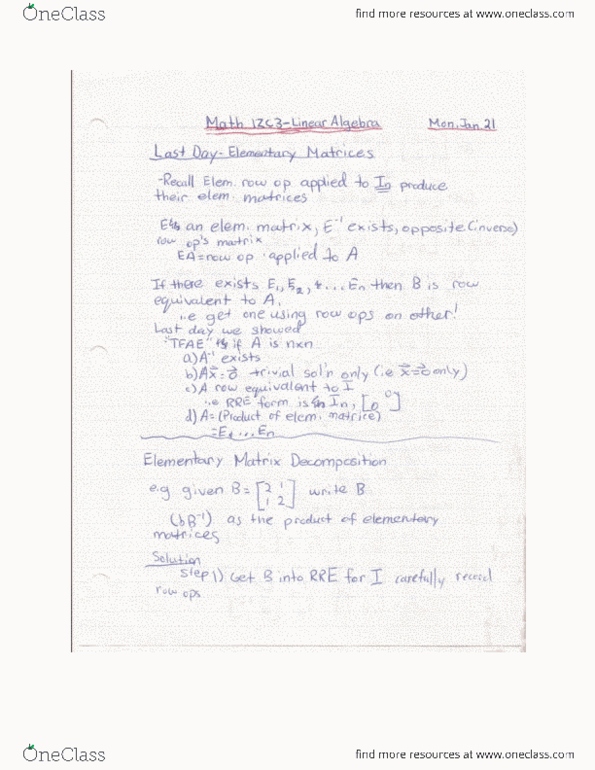 OneClass
find more resources at www.oneclass.com
Math 1ZC3-Linear Algebra Mon, Jan 21
Last Day-Elementary Matrices
-Recall Elem. row op applied to In produce
their elem. matrices
an elem. matrix, E⁻¹ exists, opposite (inverse)
row op's matrix
EA=row op applied to A
If there exists E₁, E₂, ... En then B is row
equivalent to A.
i.e get one using row ops on other!
Last day we showed
"TFAE" if A is nxn
a) A⁻¹ exists
b) Ax⃗=0⃗ trivial sol'n only (i.e x⃗=0⃗ only)
c) A row equivalent to I
i.e RRE form is In,
d) A=(Product of elem. matrice)
=E₁ ... En
Elementary Matrix Decomposition
e.g given B= [2 1
1 2] write B
(b B⁻¹) as the product of elementary
matrices
Solution
Step 1) Get B into RRE for I carefully record
row ops
OneClass
find more resources at www.oneclass.com